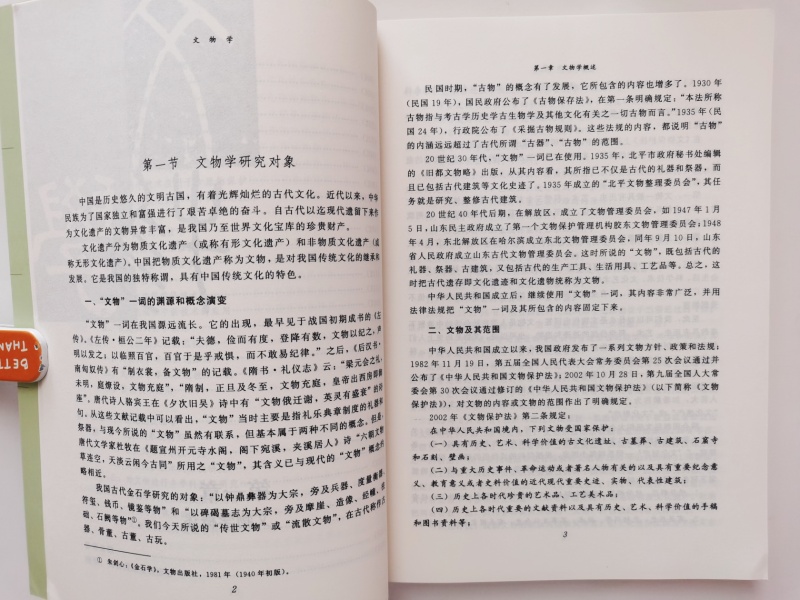 文物学
第一节 文物学研究对象
中国是历史悠久的文明古国，有着光辉灿烂的古代文化。近代以来，中华
民族为了国家独立和富强进行了艰苦卓绝的奋斗。自古代以迄现代遗留下来作
为文化遗产的文物异常丰富，是我国乃至世界文化宝库的珍贵财产。
文化遗产分为物质文化遗产（或称有形文化遗产）和非物质文化遗产（或
称无形文化遗产）。中国把物质文化遗产称为文物，是对我国传统文化的继承和
发展。它是我国的独特称谓，具有中国传统文化的特色。
一、“文物”一词的渊源和概念演变
“文物”一词在我国源远流长。它的出现，最早见于战国初期成书的《左
传》。《左传·桓公二年》记载：“夫德，俭而有度，登降有数，文物以纪之，声
明以发之；以临照百官，百官于是乎戒惧，而不敢易纪律。”之后，《后汉书·
南匈奴传》有“制衣裳，备文物”的记载。《隋书·礼仪志》云：“梁元会之礼，
未明，庭燎设，文物充庭”，“隋制，正旦及冬至，文物充庭，皇帝出西房即御
座”。唐代诗人骆宾王在《夕次旧吴》诗中有“文物俄迁谢，英灵有盛衰”的诗
句。从这些文献记载中可以看出，“文物”当时主要是指礼乐典章制度的礼器和
祭器，与现今所说的“文物”虽然有联系，但基本属于两种不同的概念，但是，
唐代文学家杜牧在《题宣州开元寺水阁，阁下宛溪，夹溪居人》诗“六朝文物
草连空，天淡云闲今古同”所用之“文物”，其含义已与现代的“文物”概念约
略相近。
我国古代金石学研究的对象：“以钟鼎彝器为大宗，旁及兵器、度量衡器、
符玺、钱币、镜鉴等物”和“以碑碣墓志为大宗，旁及摩崖、造像、经幢、柱
础、石阙等物”①。我们今天所说的“传世文物”或“流散文物”，在古代称作古
器、骨董、古董、古玩。
① 朱剑心：《金石学》，文物出版社，1981年（1940年初版）。
2
BETT
THAN
第一章 文物学概述
民国时期，“古物”的概念有了发展，它所包含的内容也增多了。1930年
（民国19年），国民政府公布了《古物保存法》，在第一条明确规定：“本法所称
古物指与考古学历史学古生物学及其他文化有关之一切古物而言。”1935年（民
国24年），行政院公布了《采掘古物规则》。这些法规的内容，都说明“古物”
的内涵远远超过了古代所谓“古器”、“古物”的范围。
20世纪30年代，“文物”一词已在使用。1935年，北平市政府秘书处编辑
的《旧都文物略》出版，从其内容看，其所指已不仅是古代的礼器和祭器，而
且已包括古代建筑等文化史迹了。1935年成立的“北平文物整理委员会”，其任
务就是研究、整修古代建筑。
20世纪40年代后期，在解放区，成立了文物管理委员会，如1947年1月
5日，山东民主政府成立了第一个文物保护管理机构胶东文物管理委员会；1948
年4月，东北解放区在哈尔滨成立东北文物管理委员会，同年9月10日，山东
省人民政府成立山东古代文物管理委员会。这时所说的“文物”，既包括古代的
礼器、祭器、古建筑，又包括古代的生产工具、生活用具、工艺品等。总之，这
时把古代遗存即文化遗迹和文化遗物统称为文物。
中华人民共和国成立后，继续使用“文物”一词，其内容非常广泛，并用
法律法规把“文物”一词及其所包含的内容固定下来。
二、文物及其范围
中华人民共和国成立以来，我国政府发布了一系列文物方针、政策和法规；
1982年11月19日，第五届全国人民代表大会常务委员会第25次会议通过并
公布了《中华人民共和国文物保护法》；2002年10月28日，第九届全国人大常
委会第30次会议通过修订的《中华人民共和国文物保护法》（以下简称《文物
保护法》），对文物的内容或文物的范围作出了明确规定。
2002年《文物保护法》第二条规定：
在中华人民共和国境内，下列文物受国家保护：
（一）具有历史、艺术、科学价值的古文化遗址、古墓葬、古建筑、石窟寺
和石刻、壁画；
（二）与重大历史事件、革命运动或者著名人物有关的以及具有重要纪念意
义、教育意义或者史料价值的近代现代重要史迹、实物、代表性建筑；
（三）历史上各时代珍贵的艺术品、工艺美术品；
（四）历史上各时代重要的文献资料以及具有历史、艺术、科学价值的手稿
和图书资料等；
3